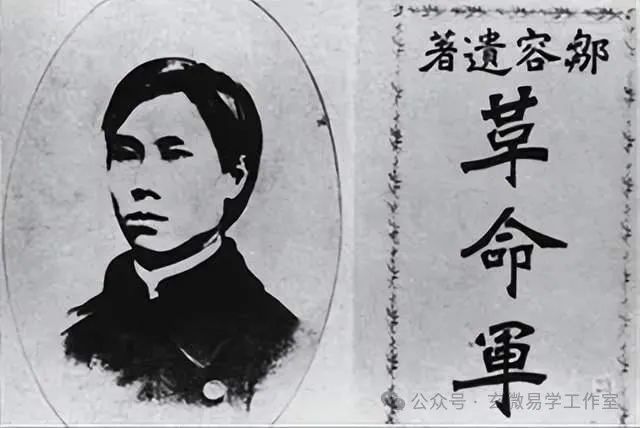 鄒容遺著
革命軍
公众号 · 玄微易学工作室